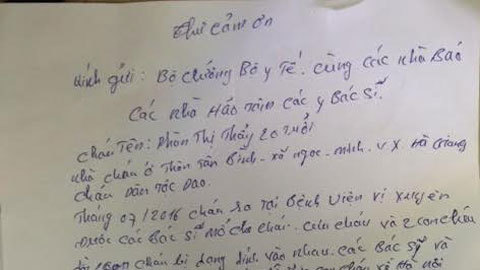 Thư cảm ơn
Kính gửi: Bộ chưởng Bộ y Tế. cùng các nhà Báo
các nhà Hảo tâm các y Bác Sĩ
cháu Tên: Phàn Thị Thẩy 20 tuổi
nhà cháu ở Thôn Tân Bình - xã ngọc - minh - V X. Hà Giang
cháu Dân tộc Dao.
Tháng 07/2016 cháu ra tại Bệnh Viên Vị xuyên
Được các Bác sĩ mổ cho cháu. cứu cháu và 2 con cháu
cháu bị dang dính vào nhau. các Bác sĩ và
Hà nội